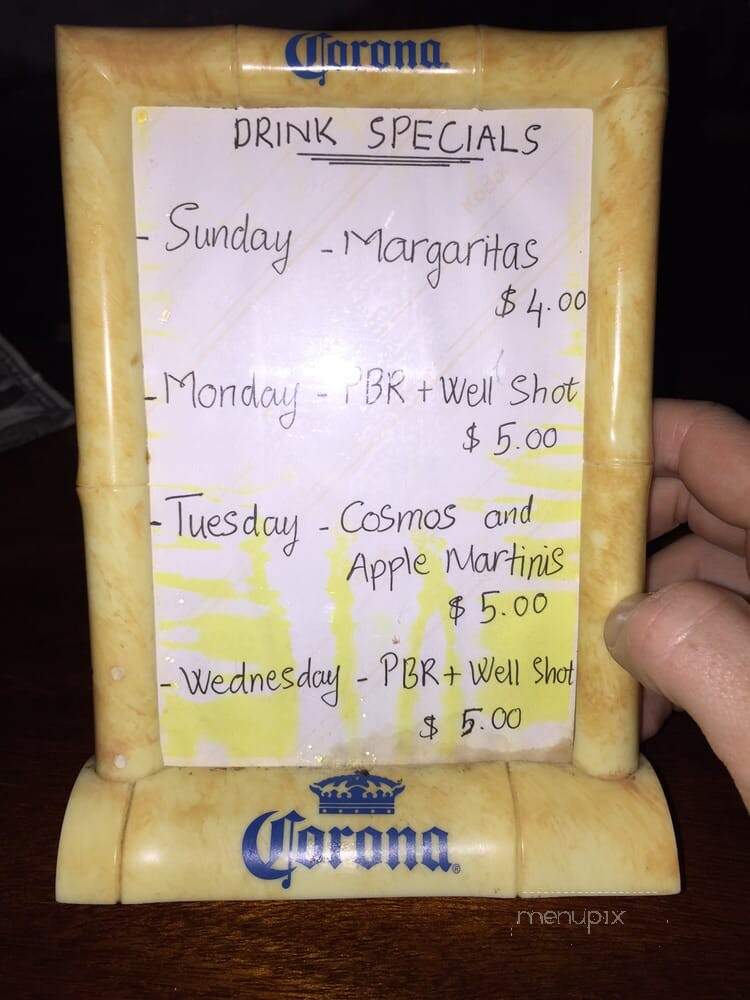 Corona
DRINK SPECIALS
- Sunday - Margaritas
$4.00
- Monday - PBR + Well Shot
$5.00
- Tuesday - Cosmos and
Apple Martinis
$5.00
- Wednesday - PBR + Well Shot
$5.00
Corona®
menupix